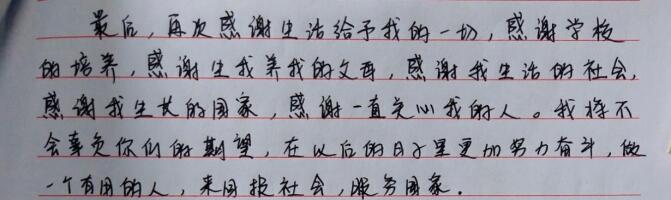 最后，再次感谢生活给予我的一切，感谢学校
的培养，感谢生我养我的父母，感谢我生活的社会，
感谢我生长的国家，感谢一直关心我的人。我将不
会辜负你们的期望，在以后的日子里更加努力奋斗，做
一个有用的人，来回报社会，服务国家.